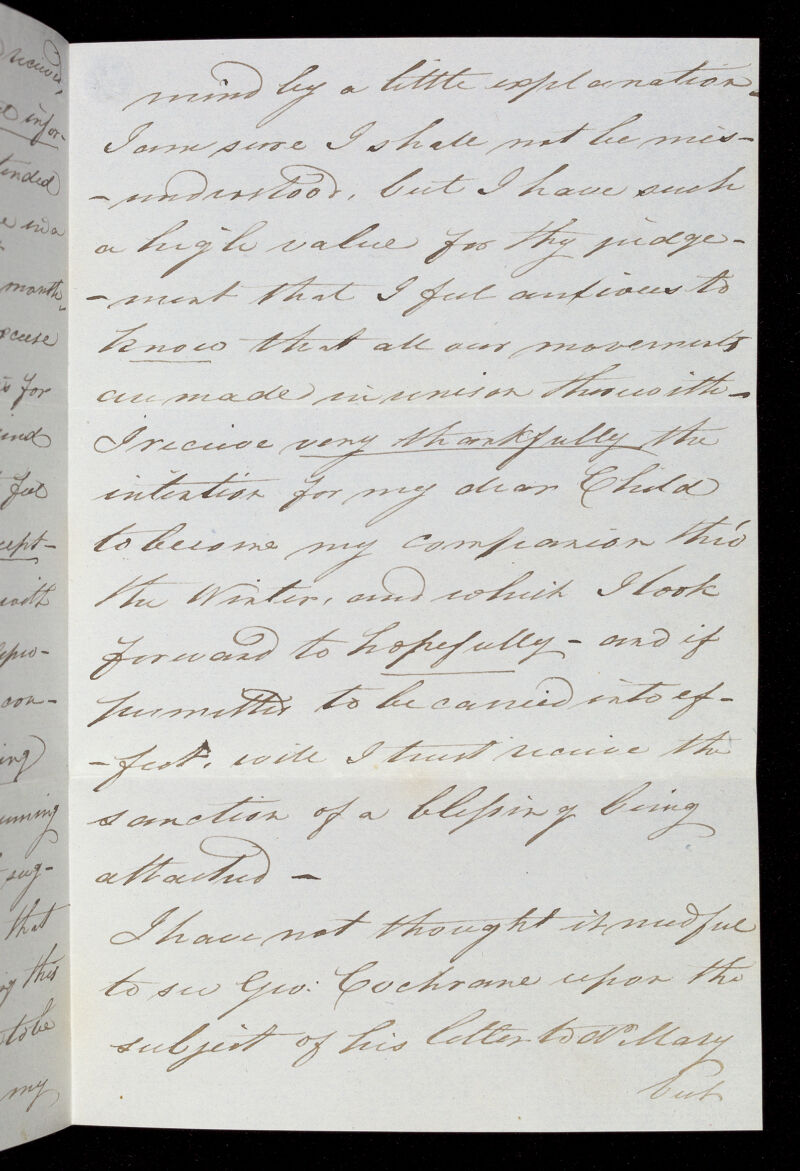 receive,
infor-
tended
in a
month,
excuse
is for
ind
feel
cept-
with
con-
ing
sug-
that
this
to be
my
mind by a little explanation -
I am sure I shall not be mis-
- understood, but I have such
a high value for thy judge-
- ment that I feel anxious to
know that all our movements
are made in unison therewith -
I receive very thankfully the
intention for my dear Child
to become my companion thro'
the Winter, and which I look
forward to hopefully - and if
permitted to be carried into ef-
- fect, will I trust receive the
sanction of a blessing being
attached -
I have not thought it needful
to see Geo: Cochrane upon the
subject of his letter to dr Mary
but